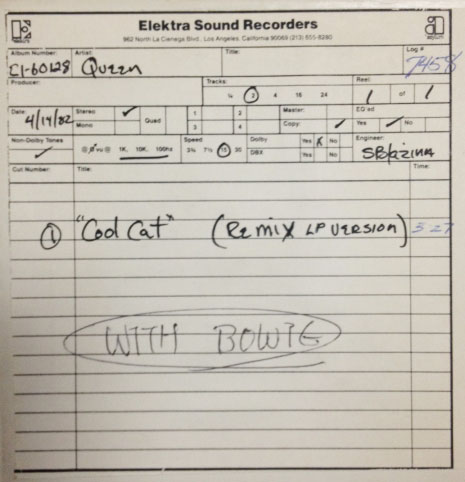 Elektra Sound Recorders
962 North La Cienega Blvd., Los Angeles, California 90069 (213) 655-8280
Album Number: Artist: Title: Log #
C1-60128 Queen 7458
Producer: Tracks: Reel:
¼ 2 4 16 24 1 of 1
Date: Stereo: Master: EQ'ed
4/14/82 Mono Quad 1 2 3 4 Copy: Yes No
Non-Dolby Tones Speed Dolby Yes No Engineer:
@ Ø vu 1K, 10K, 100hz 3¾ 7½ 15 30 DBX Yes No
Cut Number: Title: Time:
1 "Cool Cat" (Remix LP Version) 3 27
WITH BOWIE